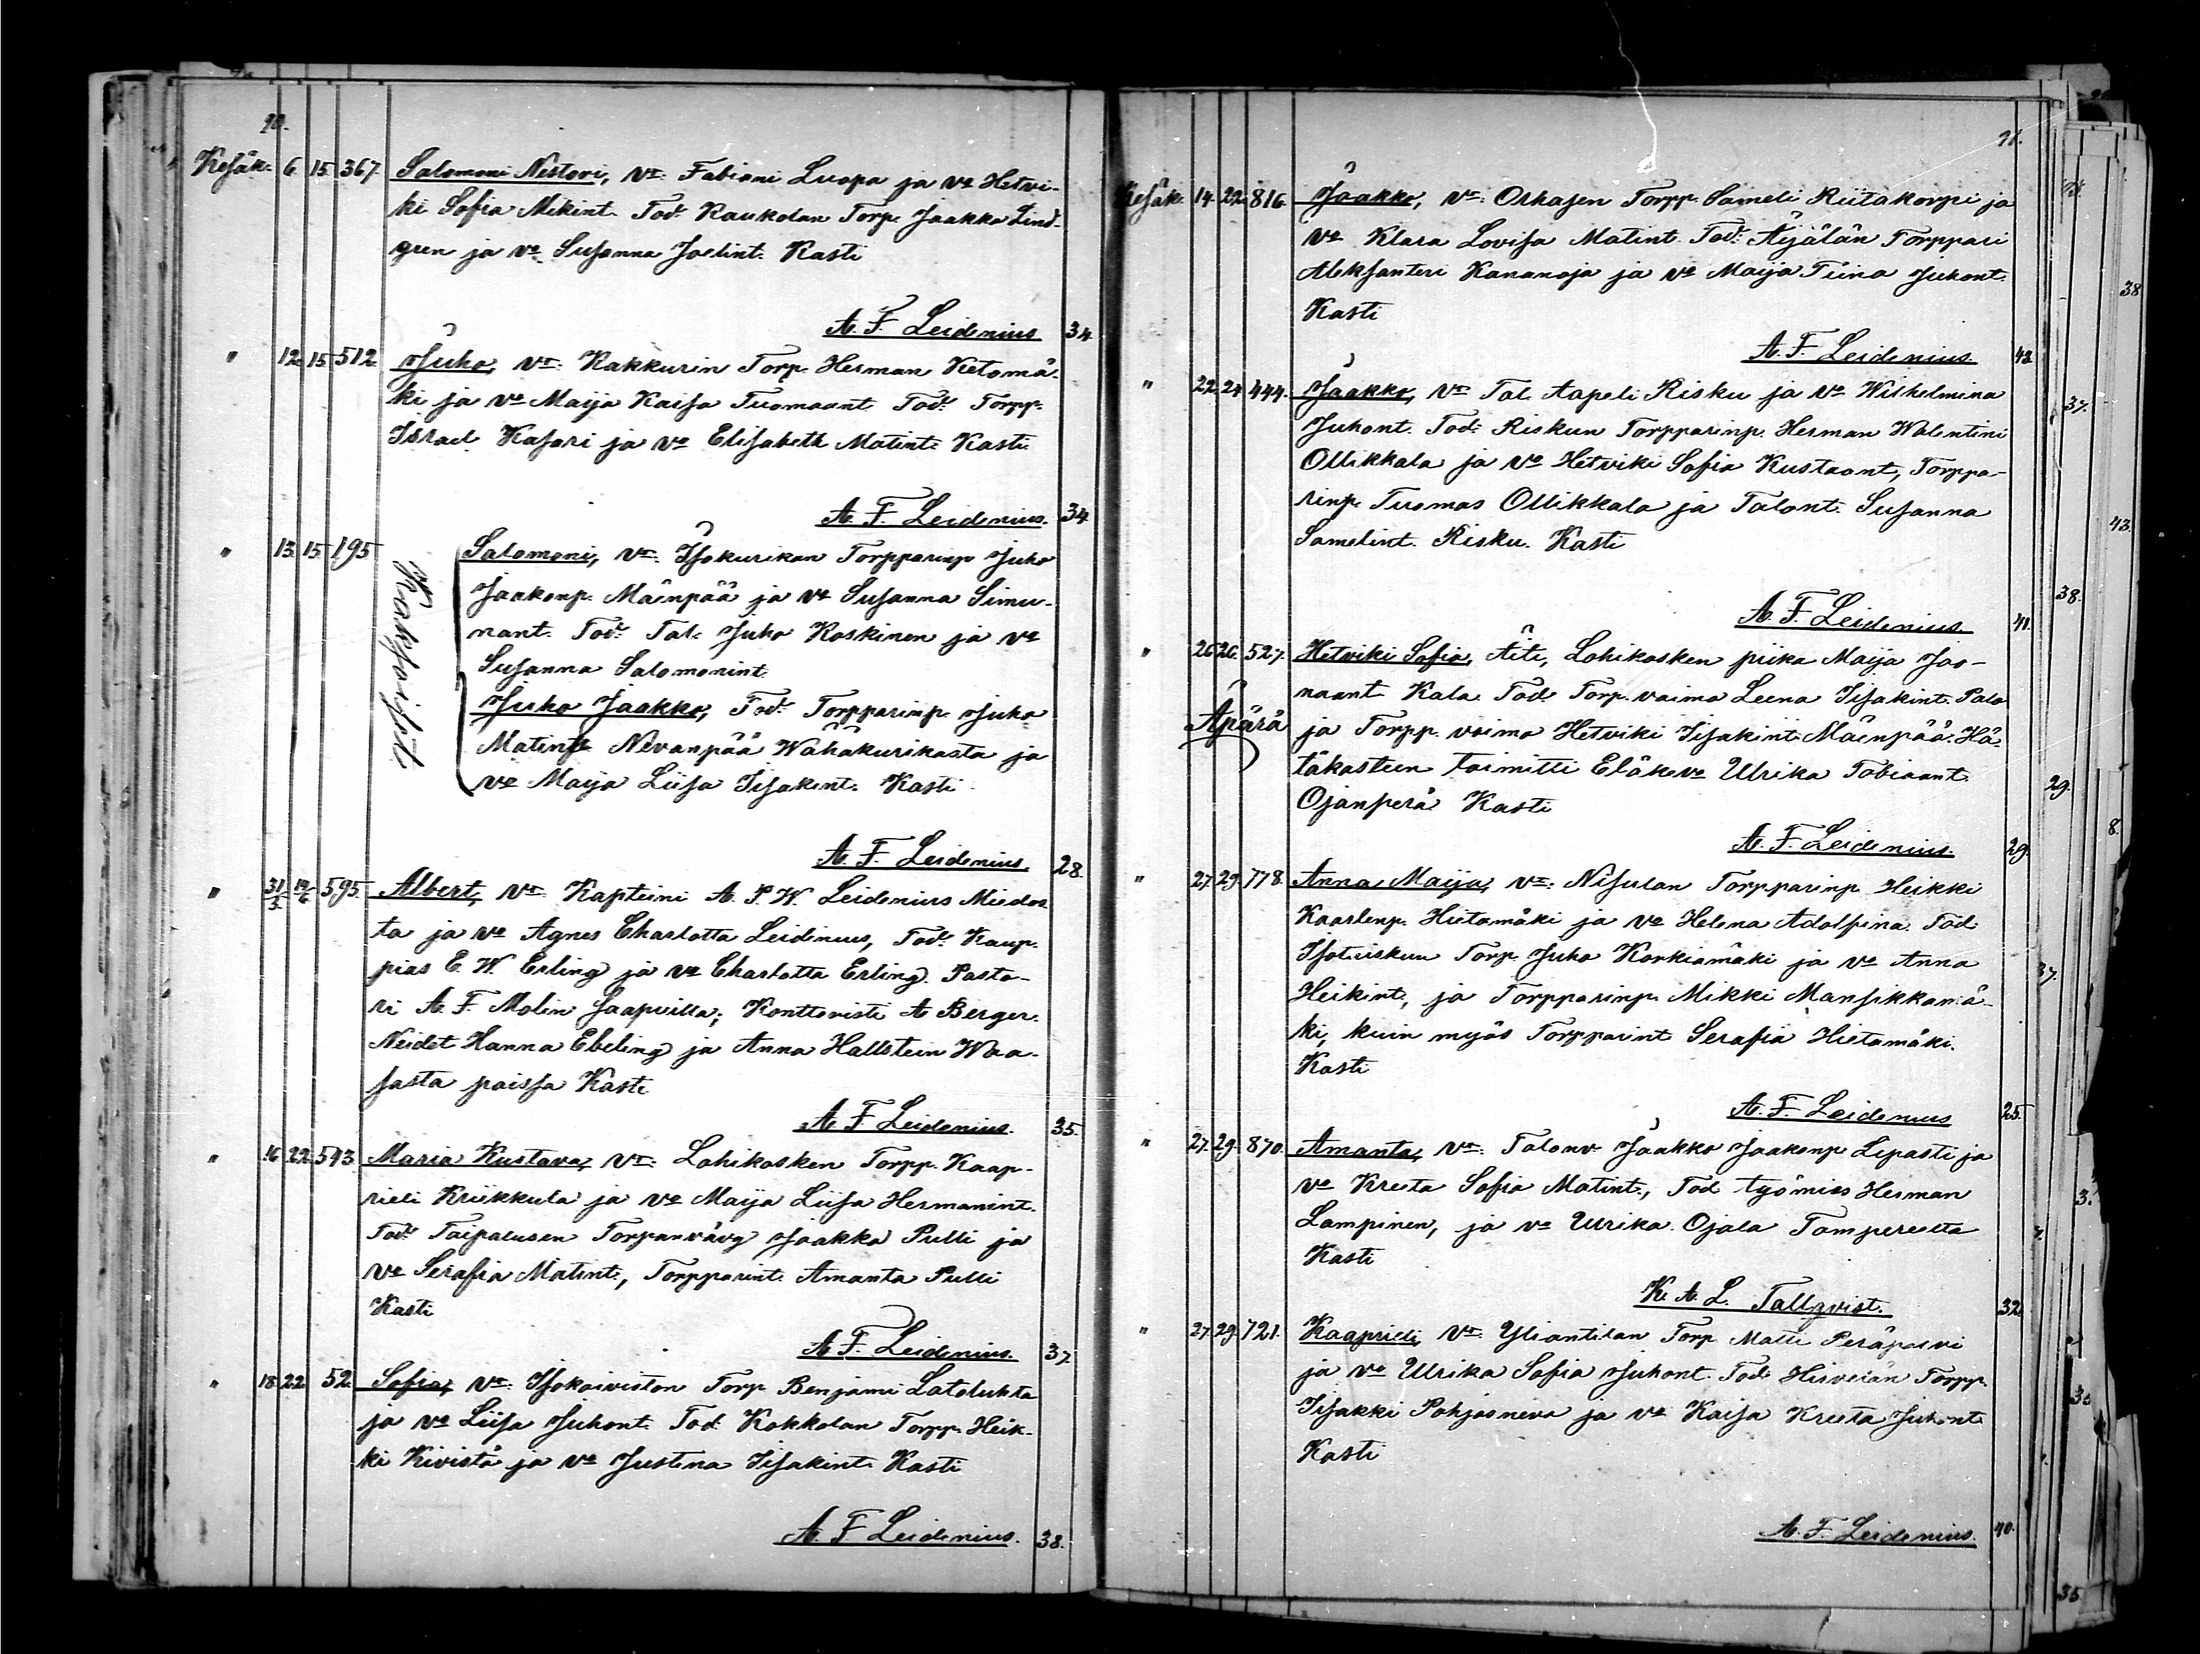 90.
Kesäk. 6. 15. 367. Salomoni Nestori, vt: Fabiani Luopa ja vo Hetvi-
ki Sofia Mikint. Tod: Kaukolan Torp. Jaakko Lind-
gren ja vo Susanna Joelint. Kasti
A. F. Leidenius 34.
" 12. 15. 512. Juho, vt: Kakkurin Torp. Herman Ketomä-
ki ja vo Maija Kaisa Tuomaant. Tod: Torpp.
Israel Kasari ja vo Elisabeth Matint. Kasti
A. F. Leidenius. 34.
" 13. 15. 195 Salomoni, vt: Isokurikan Torpparinp. Juho
Jaakonp. Mäenpää ja vo Susanna Simu-
nant. Tod: Tal. Juho Koskinen ja vo
Susanna Salomonint.
Kaksoiset.
Juho Jaakko, Tod: Torpparinp. Juho
Matinp. Nevanpää Wähäkurikasta ja
vo Maija Liisa Iisakint. Kasti
A. F. Leidenius. 28.
" 31/5 14/6 595. Albert, vt: Kapteini A. P. W. Leidenius Miedos
ta ja vo Agnes Charlotta Leidenius, Tod: Kaup-
pias E. W. Erling ja vo Charlotta Erling. Pasto-
ri A. F. Molin Jaapuilla; Konttoristi A Berger.
Neidet Hanna Ebeling ja Anna Hallstein Waa-
sasta poissa Kasti
A. F. Leidenius. 35.
" 16. 22. 543. Maria Kustava, vt: Lohikosken Torpp. Kaap-
rieli Kriikkula ja vo Maija Liisa Hermanint.
Tod: Taipalusen Torpanvävy Jaakko Pulli ja
vo Serafia Matint., Torpparint. Amanta Pulli
Kasti
A. F. Leidenius. 37.
" 18. 22. 52. Sofia, vt: Isokoiviston Torp. Benjami Latolukta
ja vo Liisa Juhont. Tod: Kokkolan Torpp. Heik-
ki Kivistö ja vo Justina Iisakint. Kasti
A. F. Leidenius. 38.
91.
Kesäk. 14. 22. 816. Jaakko, vt: Orhasen Torpp. Sameli Riitakorpi ja
vo Klara Lovisa Matint. Tod: Äijälän Torppari
Aleksanteri Kananoja ja vo Maija Tiina Juhont.
Kasti
A. F. Leidenius. 43.
" 22. 24. 444. Jaakko, vt: Tal. Aapeli Risku ja vo Wilhelmina
Juhont. Tod: Riskun Torpparinp. Herman Walentini
Ollikkala ja vo Hetviki Sofia Kustaant., Torppa-
rinp. Tuomas Ollikkala ja Talont. Susanna
Samelint. Risku. Kasti
A. F. Leidenius. 41.
" 26. 26. 527. Hetviki Sofia, Äiti, Lohikosken piika Maija Joo-
naant. Kala. Tod: Torp. vaimo Leena Iisakint. Palo
Äpärä
ja Torpp. vaimo Hetviki Iisakint. Mäenpää. Hä-
täkasteen toimitti Eläkevo Ulrika Tobiaant.
Ojanperä Kasti
A. F. Leidenius. 29.
" 27. 29. 778. Anna Maija, vt: Nisulan Torpparinp. Heikki
Kaarlenp. Hietamäki ja vo Helena Adolfina. Tod:
Isoluiskun Torp. Juho Korkiamäki ja vo Anna
Heikint., ja Torpparinp. Mikki Mansikkamä-
ki, kuin myös Torpparint. Serafia Hietamäki.
Kasti
A. F. Leidenius 25.
" 27. 29. 870. Amanta, vt: Talonv. Jaakko Jaakonp. Lepasti ja
vo Kreeta Sofia Matint., Tod: työmies Herman
Lampinen, ja vo Ulrika Ojala Tampereelta
Kasti
K. A. L. Tallqvist. 32.
" 27. 29. 721. Kaaprieli, vt: Yliantilan Torp. Matti Peräpasvi
ja vo Ulrika Sofia Juhont. Tod: Hirveiän Torpp.
Iisakki Pohjasneva ja vo Kaisa Kreeta Juhont.
Kasti
A. F. Leidenius. 40.